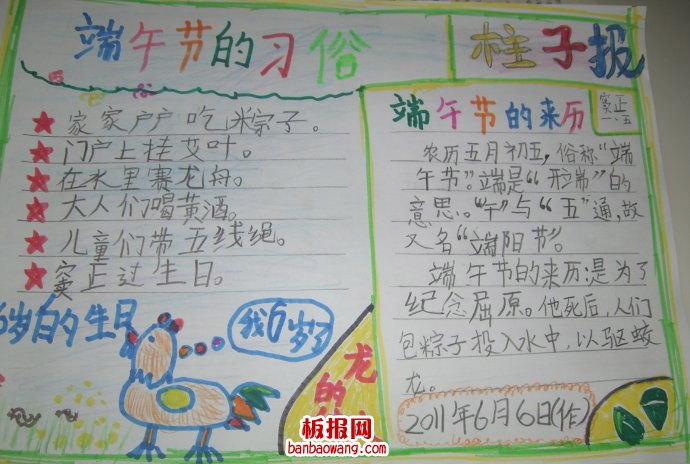 端午节的习俗
柱子报
★家家户户吃粽子。
★门户上挂艾叶。
★在水里赛龙舟。
★大人们喝黄酒。
★儿童们带五线绳。
★窦正过生日。
6岁的生日
我6岁了
端午节的来历
窦正
一.五
农历五月初五，俗称“端
午节”。端是“开端”的
意思。“午”与“五”通，故
又名“端阳节”。
端午节的来历是为了
纪念屈原。他死后，人们
包粽子投入水中，以驱蛟
龙。
2011年6月6日(作)
龙
的
板报网
banbaowang.com